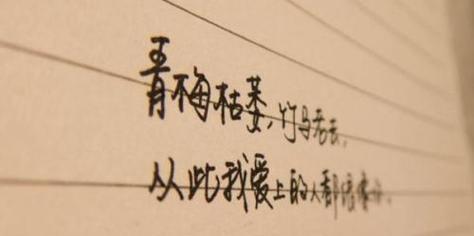 青梅枯萎,竹马老去,
从此我爱上的人都